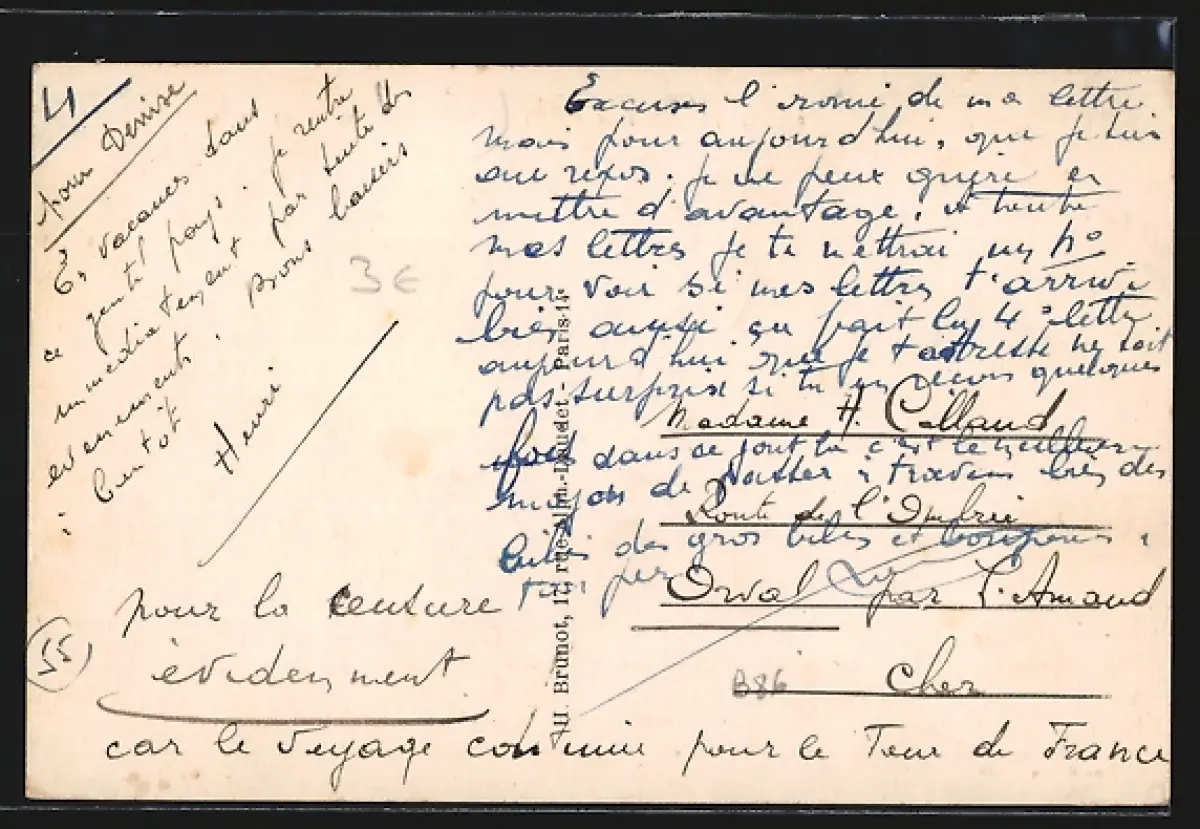 4
pour Denise
En vacances dans
ce gentil pays. je rentre
immediatement par suite des
evenements. Bons baisers
à bientôt
Henri
3€
Excuses l'ironie de ma lettre
mais pour aujourd'hui, que je suis
au repos. je ne peux guère en
mettre d'avantage. A toute
mes lettres je te mettrai un No
pour voir si mes lettres t'arrive
bien ainsi en fait la 4e lettre
aujourd'hui que je t'adresse ne soit
pas surprise si tu en reçois quelques
fois dans ce c'est le meilleur
moyen de passer à travers des
des gros et
Madame H. Colland
Route de l'Ombrée
Orval par St Amand
Cher
B86
H. Brunot, 17, rue Alph.-Daudet - Paris-14e
pour la censure
évidemment
55
car le voyage continue pour le Tour de France